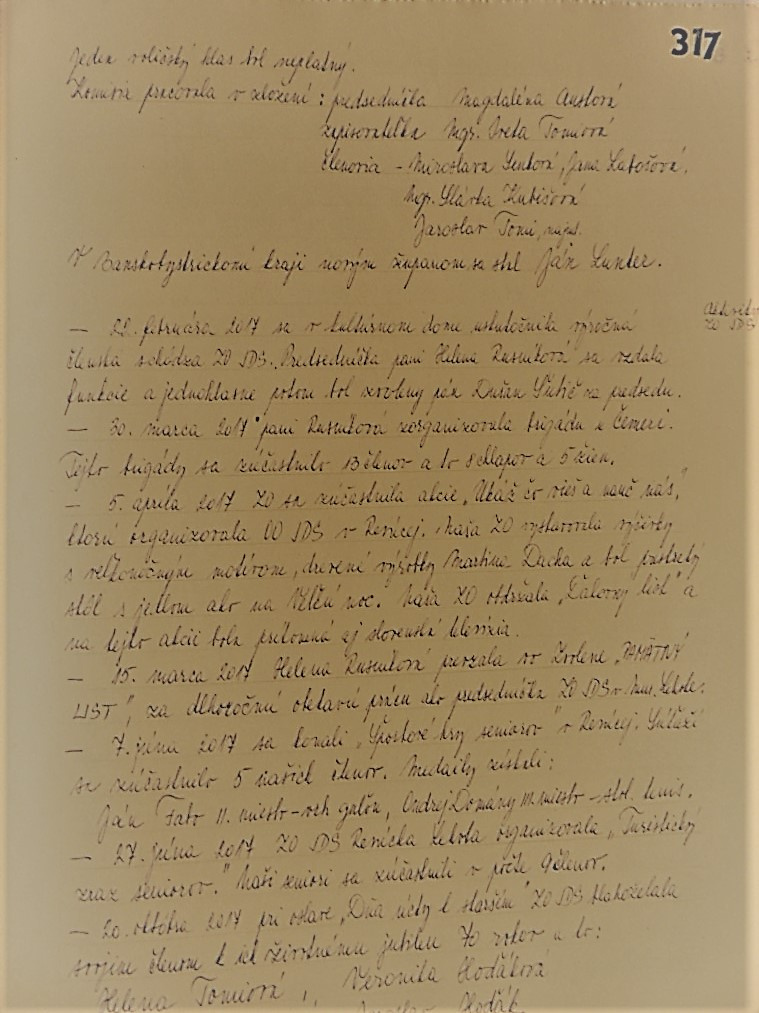 317
Jeden voličský hlas bol neplatný.
Komisia pracovala v zložení : predsedníčka Magdaléna Austová
zapisovateľka Mgr. Iveta Tomiová
členovia - Miroslava Gentová, Jana Latošová,
Mgr. Slávka Kubišová
Jaroslav Tomi, najml.
V Banskobystrickom kraji novým županom sa stal Ján Lunter.
Aktivity
ZO JDS
— 22. februára 2017 sa v kultúrnom dome uskutočnila výročná
členská schôdza ZO JDS. Predsedníčka pani Helena Rusnáková sa vzdala
funkcie a jednohlasne potom bol zvolený pán Dušan Šutič za predsedu.
— 30. marca 2017 pani Rusnáková zorganizovala brigádu v Čemeri.
Tejto brigády sa zúčastnilo 13 členov a to 8 chlapov a 5 žien.
— 5. apríla 2017 ZO sa zúčastnila akcie „Ukáž čo vieš a nauč nás,"
ktorú organizovala OO JDS v Revúcej. Naša ZO vystavovala výšivky
s veľkonočným motívom, drevené výrobky Martina Dacka a bol prestretý
stôl s jedlom ako na Veľkú noc. Naša ZO obdržala „Ďakovný list" a
na tejto akcii bola prítomná aj slovenská televízia.
— 15. marca 2017 Helena Rusnáková prevzala vo Zvolene „PAMÄTNÝ
LIST", za dlhoročnú obetavú prácu ako predsedníčka ZO JDS v Mur. Lehote.
— 7. júna 2017 sa konali „Športové hry seniorov" v Revúcej. Súťaží
sa zúčastnilo 5 našich členov. Medaily získali:
Ján Fabo II. miesto - vrh guľou, Ondrej Domány III. miesto - stol. tenis.
— 27. júna 2017 ZO JDS Revúcka Lehota organizovala „Turistický
zraz seniorov." Naši seniori sa zúčastnili v počte 9 členov.
— 20. októbra 2017 pri oslave „Dňa úcty k starším" ZO JDS blahoželala
svojim členom k ich životnému jubileu 70 rokov a to:
Helena Tomiová, Veronika Hodáková
Jaroslav Hodák